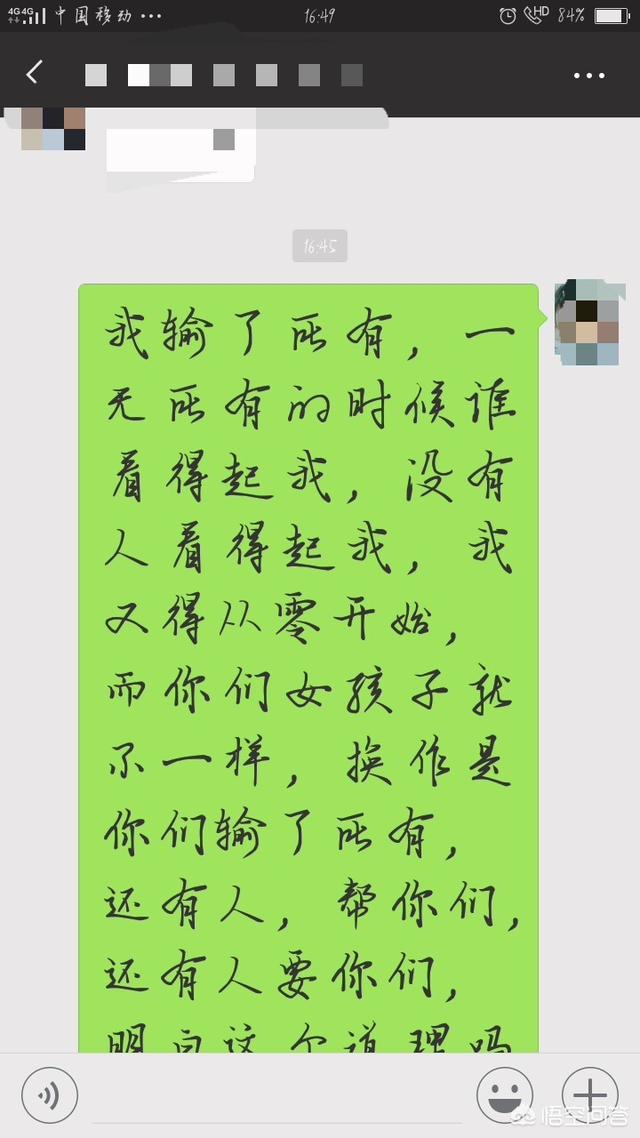 4G 4G 中国移动 ... 16:49 HD 84%
16:45
我输了所有，一
无所有的时候谁
看得起我，没有
人看得起我，我
又得从零开始，
而你们女孩子就
不一样，换作是
你们输了所有，
还有人，帮你们，
还有人要你们，
明白这个道理吗
悟空问答